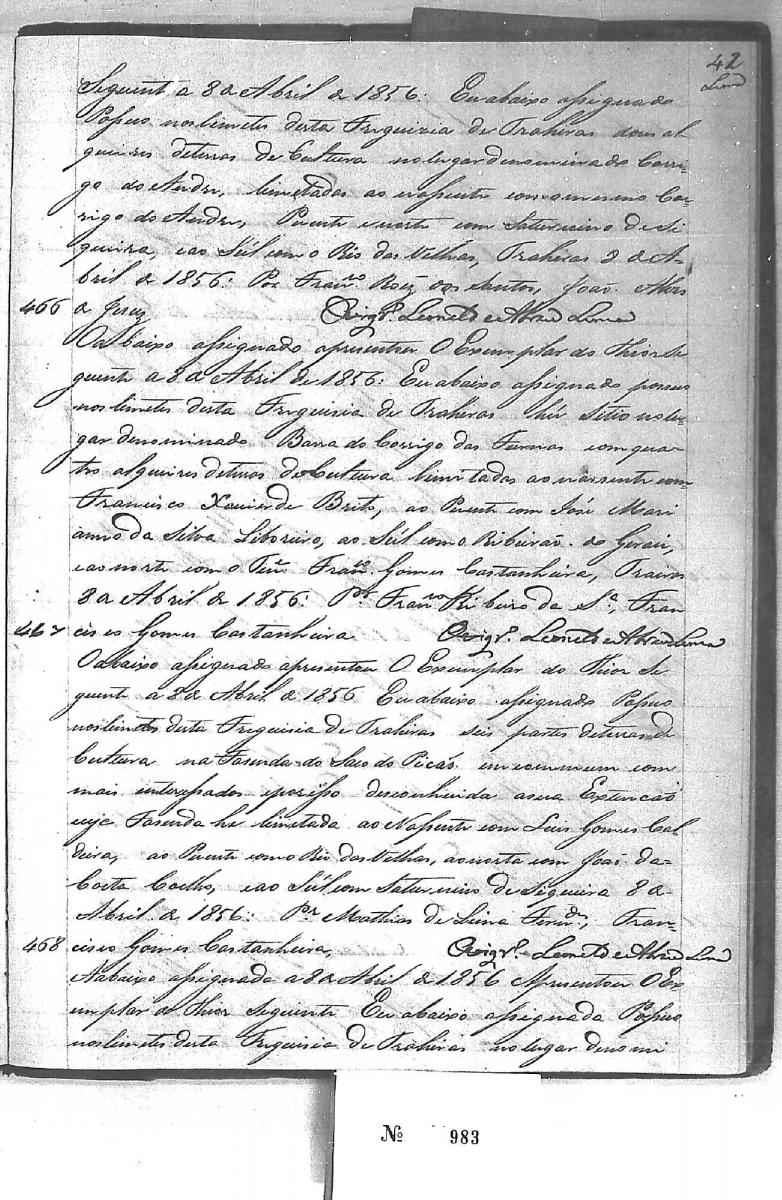 42
Lima
Seguente a 8 de Abril de 1856: Eu abaixo assignado
Possuo nos limites desta Freguisia de Trahiras dous al
queires deterras de Cultura no lugar denominado Corri-
go do Andre, limetadas ao nassente com o mesmo Cor-
rigo do Andre, Puente e norte com Saturnino de Si
queira, e ao Sul com o Rio das Velhas, Trahiras 8 de A-
bril de 1856: Por Franco Roiz dos Santos, João Alves
466 de Jesuz Vigro Leonel de Abreu Lima
O abaixo assignado apresentou O Exemplar do Thior Se
guente a 8 de Abril de 1856: Eu abaixo assignado possuo
nos limetes desta Friguisia de Trahiras hũ Sitio no lu-
gar denominado Barra do Corrigo das Furnas com qua-
tro alqueires deterras de Cultura limitadas ao nassente com
Francisco Xavier de Brito, ao Puente com José Mari
anno da Silva Liboreiro, ao Sul com o Ribeirão do Gerais,
e ao norte com o Ten. Franco Gomes Castanheira, Trairas
8 de Abril de 1856: Por Franco Ribeiro da Sa, Fran
467 cisco Gomes Castanheira Vigro Leonel de Abreu Lima
O abaixo assignado apresentou O Exemplar do Thior Se
guente a 8 de Abril de 1856 Eu abaixo assignado Possuo
nos limetes desta Friguisia de Trahiras seis partes deterras de
Cultura na Fasenda do Saco do Picão em commum com
mais interessados eporisso desconhecida a sua Extencão
cuja Fasenda he limetada ao Nassente com Luis Gomes Cal
deira, ao Puente com o Rio das Velhas, ao norte com João da
Costa Coelho, e ao Sul com Saturnino de Siqueira 8 de
Abril de 1856: Por Mathias de Lima, Fran-
468 cisco Gomes Castanheira, Vigro Leonel de Abreu Lima
A abaixo assignada a 8 de Abril de 1856 Apresentou O Ex
emplar do Thior Seguente Eu abaixo assignada Possuo
nos limetes desta Friguisia de Trahiras no lugar denomi
No 983